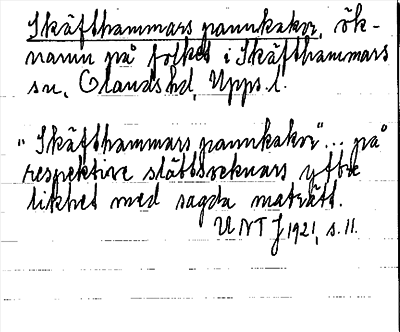 Skäfthammars pannkakor, ök-
namn på folket i Skäfthammars
sn, Olands hd, Upps. l.
"Skäfthammars pannkakor"... på
respektive slättsocknars yttre
likhet med sagda maträtt.
UNT J 1921, s. 11.